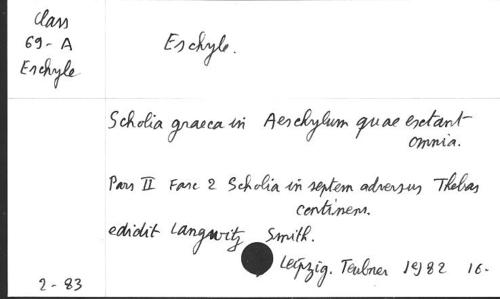 Class
69-A
Eschyle
Eschyle.
Scholia graeca in Aeschylum quae exstant
omnia.
Pars II Fasc 2 Scholia in septem adversus Thebas
continens.
edidit Langwitz Smith.
Leipzig. Teubner 1982 16-
2-83